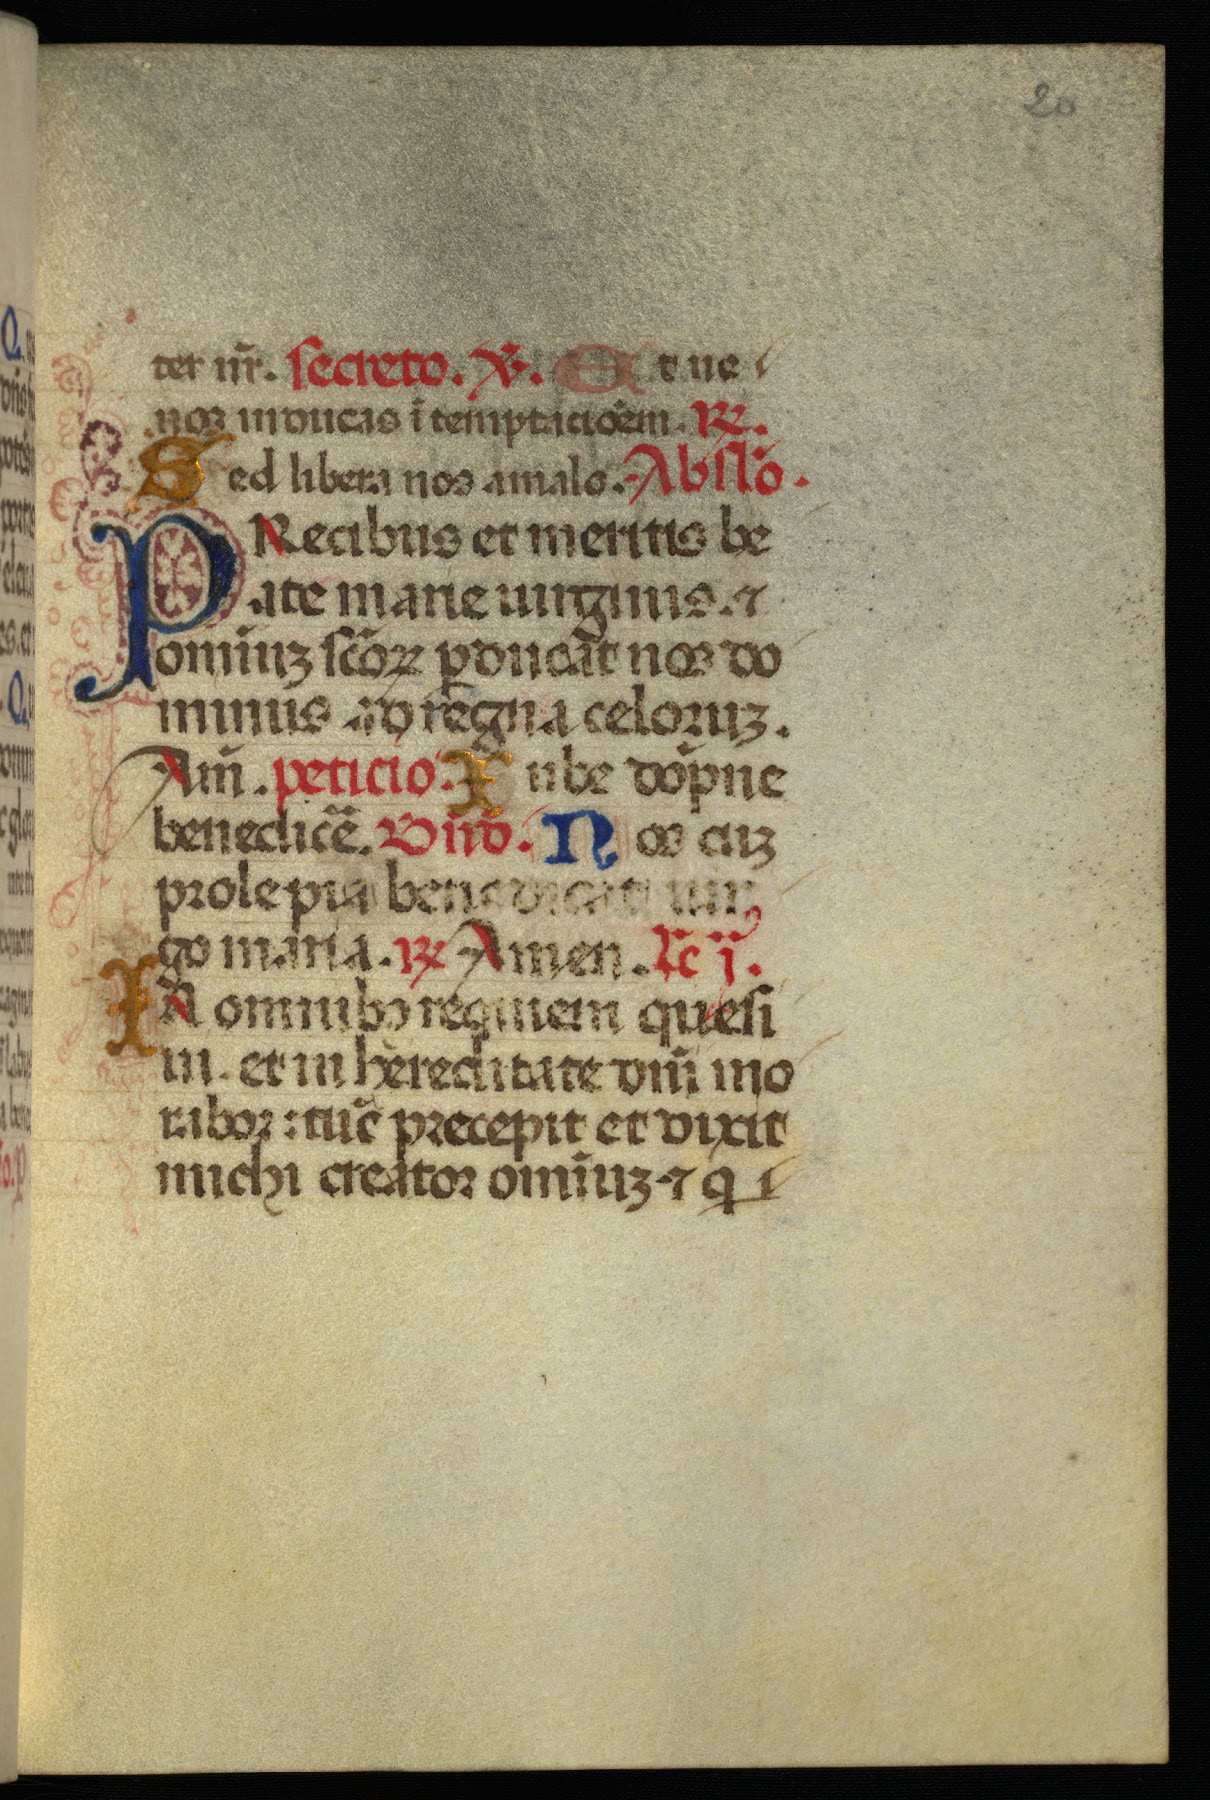 20
ter nr̄. secreto. V̄. Et ne
nos inducas ī temptacioēm. R̄.
Sed libera nos amalo. Absl̄o.
PRecibus et meritis be
ate marie uirginis. ⁊
omīuꝫ sc̄oꝝ ꝑducāt nos do
minus ad regna celoruꝫ.
Am̄. peticio. Iube dōpne
benedicē. Bn̄d. Nos cuꝫ
prole pia benedicat uir
go maria. R̄ Amen. Lc̄ j.
IN omnibꝫ requiem quesi
ui. et in hereditate dn̄i mo
rabor: tūc precepit et dixit
michi creator omīuꝫ ⁊ q̄